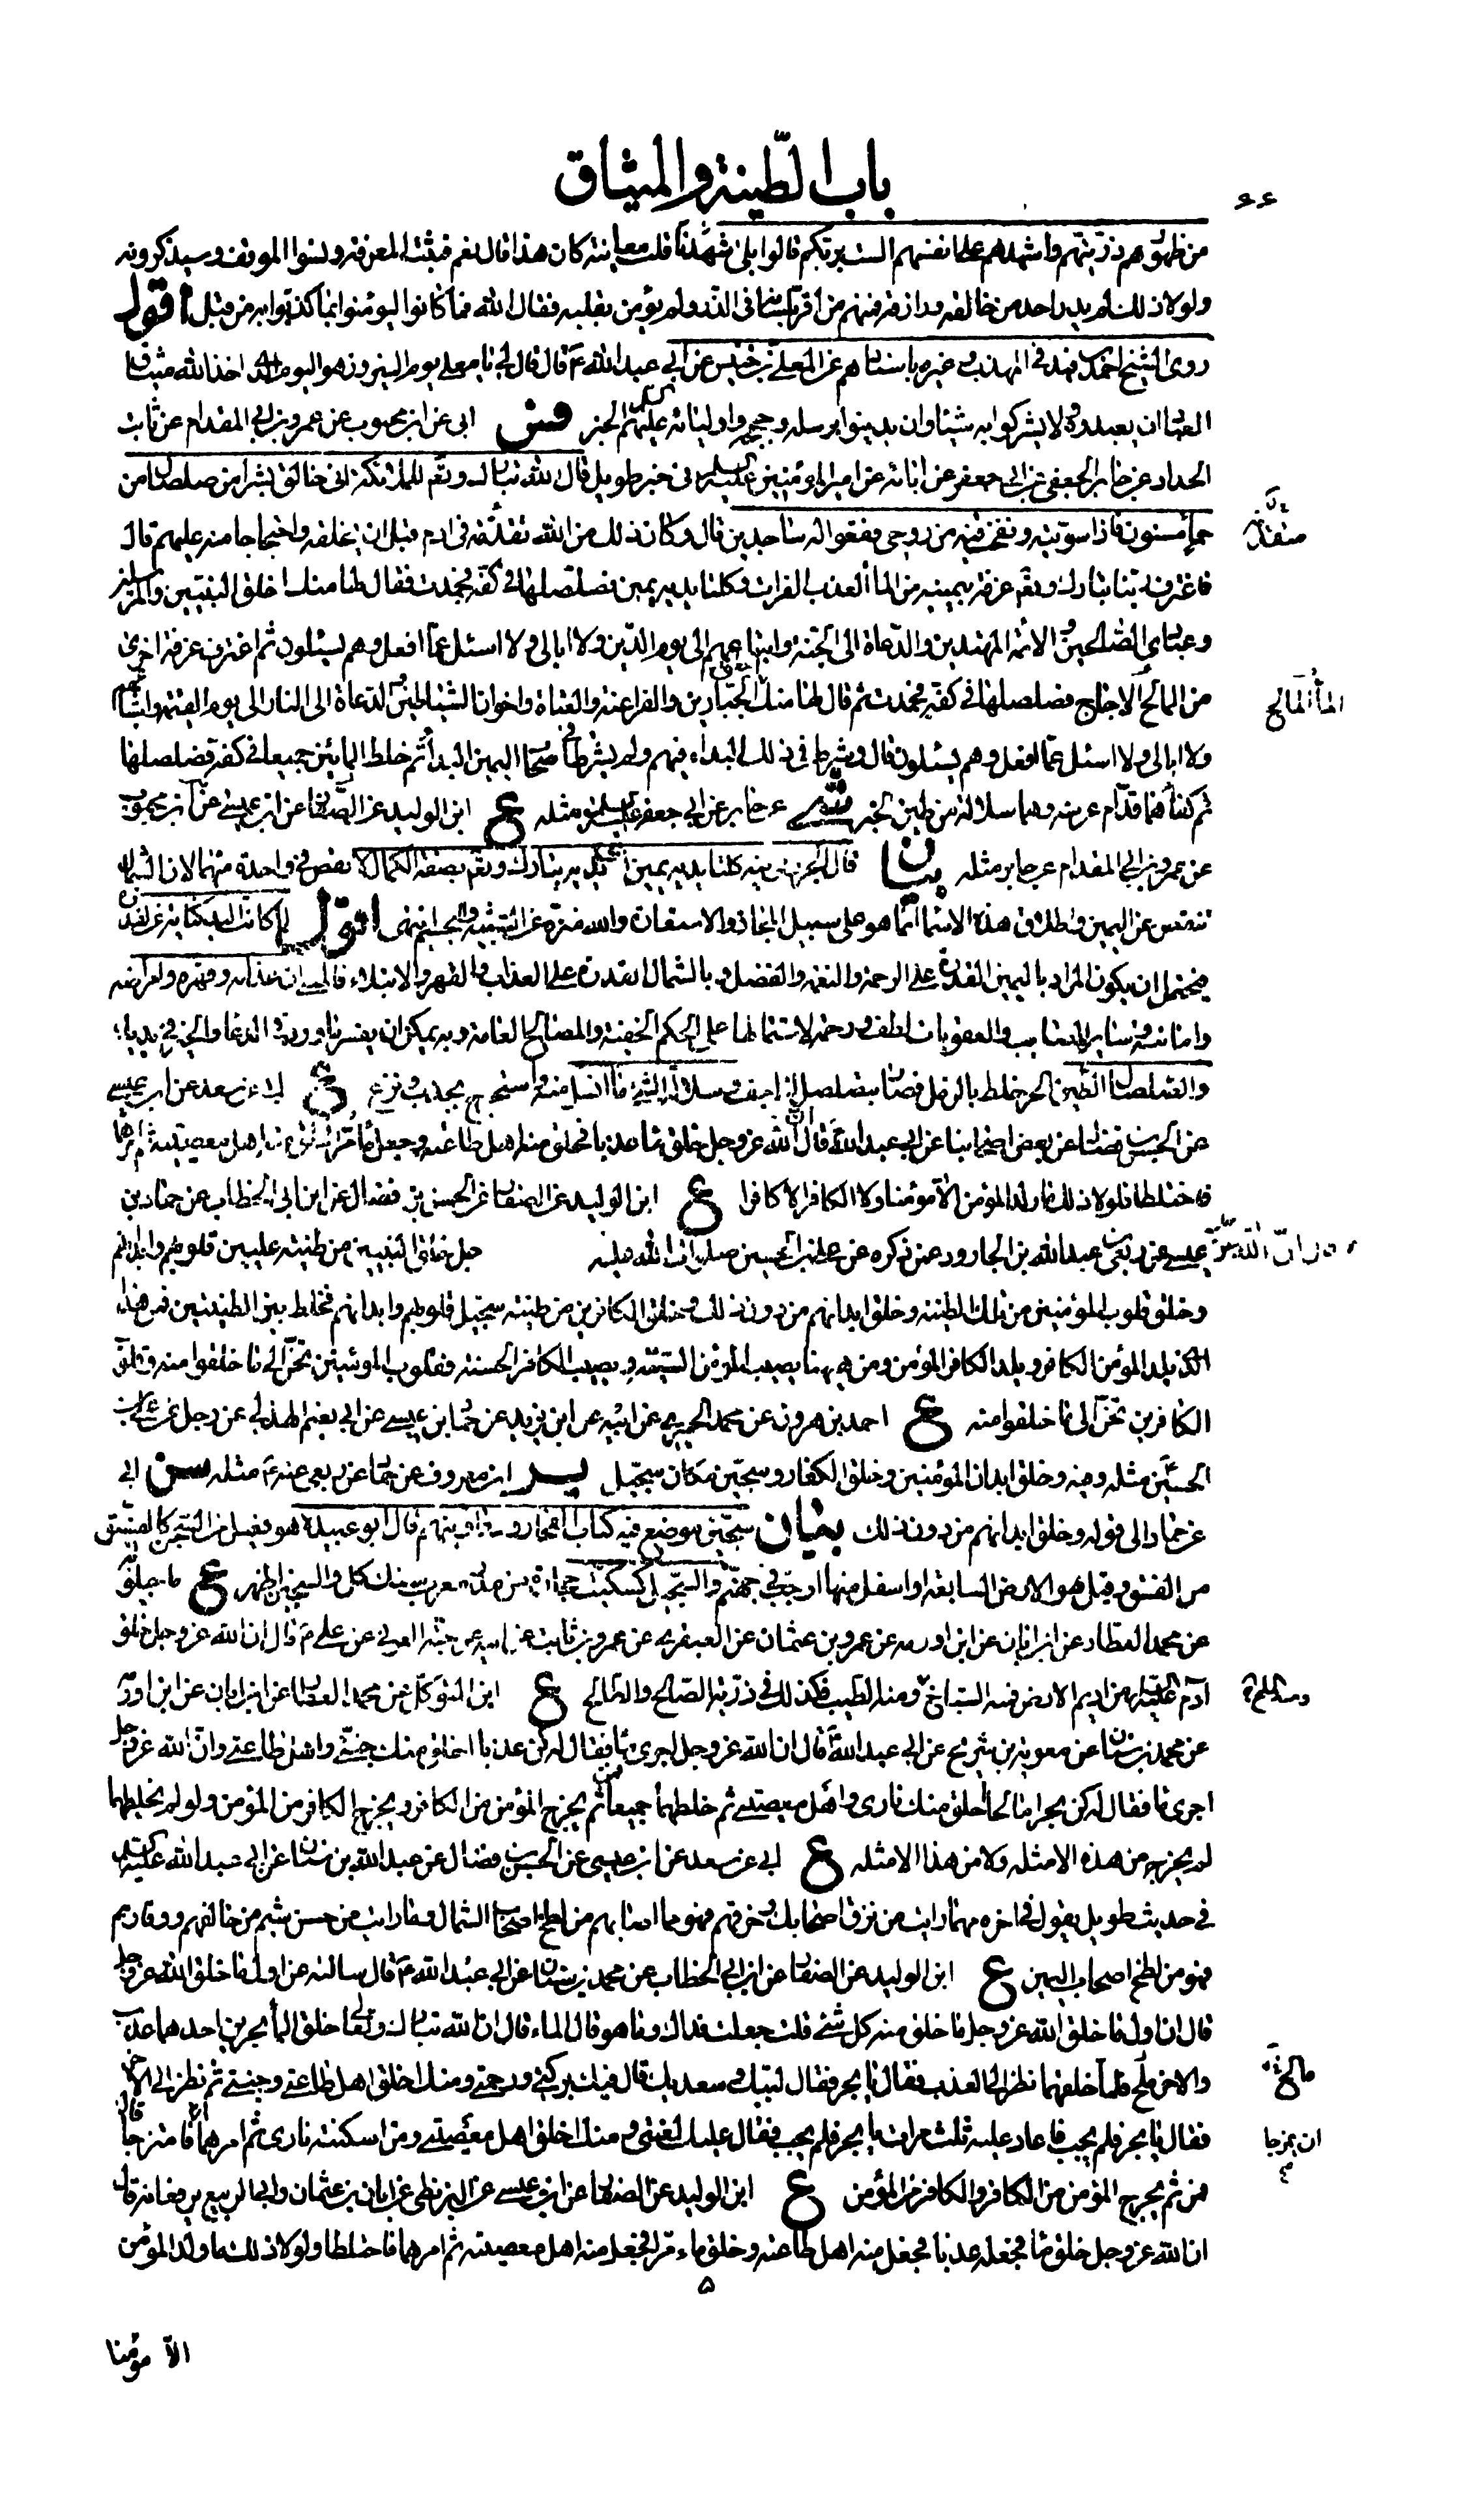 باب الطّینة والمیثاق
۶۶
من ظهورهم ذرّیتهم واشهدهم علی انفسهم الست بربّکم قالوا بلی شهدنا قلت معاینة کان هذا قال نعم فثبتت المعرفة ونسوا الموقف وسیذکرونه
ولولا ذلک لم یدر احد من خالقه ورازقه فمنهم من اقرّ بلسانه فی الذر ولم یؤمن بقلبه فقال الله فما کانوا لیؤمنوا بما کذّبوا به من قبل أقول
روی الشیخ احمد بن فهد فی المهذب وغیره باسنادهم عن المعلّی بن خنیس عن ابی عبدالله ع قال قال لی یا معلّی یوم النیروز هو الیوم الذی اخذ الله میثاق
العباد ان یعبدوه ولا یشرکوا به شیئا وان یدینوا برسله وحججه واولیائه علیهم السلام الخبر فس ابی عن ابن محبوب عن عمرو بن ابی المقدام عن ثابت
الحداد عن جابر الجعفی عن ابی جعفر عن ابائه عن امیر المؤمنین علیه السلام فی خبر طویل قال الله تبارک وتعم للملائکة انی خالق بشرا من صلصال من
حماء مسنون فاذا سوّیته ونفخت فیه من روحی فقعوا له ساجدین قال وکان ذلک من الله تقدمة فی ادم قبل ان یخلقه واحتجاجا منه علیهم قال
فاغترف ربنا تبارک وتعم غرفة بیمینه من الماء العذب الفرات وکلتا یدیه یمین فصلصلها فی کفه فجمدت فقال لها منک اخلق النبیین والمرسلین
وعبادی الصالحین والائمة المهتدین والدعاة الی الجنة واتباعهم الی یوم الدّین ولا ابالی ولا اسئل عما افعل وهم یسئلون ثم اغترف غرفة اخری
من المالح الاجاج فصلصلها فی کفه فجمدت ثم قال لها منک اخلق الجبّارین والفراعنة والعتاة واخوان الشیاطین والدعاة الی النار الی یوم القیمة واشیاعهم
الماء المالح
ولا ابالی ولا اسئل عما افعل وهم یسئلون قال وشرط فی ذلک البداء فیهم ولم یشرط فی اصحاب الیمین البداء ثم خلط المائین جمیعا فی کفه فصلصلها
ثم کفاهما قدّام عرشه وهما سلالة من طین الخبر شی عن جابر عن ابی جعفر علیه السلام مثله ع ابن الولید عن الصفار عن ابن عیسی عن ابن محبوب
عن عمرو بن ابی المقدام عن جابر مثله بیان قال الجزری فیه کلتا یدیه یمین ای ان یدیه تبارک وتعم بصفة الکمال لا نقص فی واحدة منهما لان الشمال
تنقص عن الیمین واطلاق هذه الاسماء انما هو علی سبیل المجاز والاستعارة والله منزّه عن التشبیه والتجسیم انتهی اقول لما کانت الید کنایة عن القدرة
فیحتمل ان یکون المراد بالیمین القدرة علی الرحمة والنعمة والفضل وبالشمال القدرة علی العذاب والقهر والابتلاء فالمعنی ان عذابه وقهره وامراضه
واماتته وسایر المصائب والعقوبات لطف ورحمة لاشتمالها علی الحکم الخفیة والمصالح العامة وبه یمکن ان یفسر ما ورد فی الدعاء والخیر فی یدیک
والصلصال الطین الحر خلط بالرمل فصار یتصلصل اذا جف وسلالة الشیء ما انسل منه واستخرج بجذب ونزع ع ابی عن سعد عن ابن عیسی
عن الحسن بن فضال عن بعض اصحابنا عن ابی عبد الله ع قال ان الله عز وجل خلق ماء عذبا فخلق منه اهل طاعته وجعل ماء مرّا فخلق منه اهل معصیته ثم امرهما
فاختلطا فلولا ذلک ما ولد المؤمن الا مؤمنا ولا الکافر الا کافرا ع ابن الولید عن الصفار عن الحسن بن فضال عن ابن ابی الخطاب عن حماد بن
عیسی عن ربعی عن عبدالله بن الجارود عمن ذکره عن علی بن الحسین صلوات الله علیه جل خلق النبیین من طینة علیین قلوبهم وابدانهم
وخلق قلوب المؤمنین من تلک الطینة وخلق ابدانهم من دون ذلک وخلق الکافرین من طینة سجّیل قلوبهم وابدانهم فخلط بین الطینتین فمن هذا
الذی یلد المؤمن الکافر ویلد الکافر المؤمن ومن هیهنا یصیب المؤمن السیّئة ویصیب الکافر الحسنة فقلوب المؤمنین تحنّ الی ما خلقوا منه وقلوب
الکافرین تحنّ الی ما خلقوا منه ع احمد بن هرون عن محمد الحمیری عن ابیه عن ابن یزید عن حماد بن عیسی عن ابی نعیم الهذلی عن رجل عن علی بن
الحسین مثله وفیه وخلق ابدان المؤمنین وخلق الکفار وسجّین مکان سجّیل یر ابن معروف عن حماد عن ربعی عنه ع مثله سن ابی
عن حماد الی قوله وخلق ابدانهم من دون ذلک بیان سجّین موضع فیه کتاب الفجار ودواوینهم قال ابو عبیدة هو فعیل من السجن کالفسّیق
من الفسق وقیل هو الارض السابعة او اسفل منها او جبّ فی جهنّم والسجّیل کسکّیت حجارة من مدر معرب سنک کل والسجین اظهر ع ماجیلویه
عن محمد العطار عن ابن ابان عن ابن اورمة عن عمرو بن عثمان عن العبقری عن عمرو بن ثابت عن ابیه عن حبّة العرنی عن علی م قال ان الله عز وجل خلق
آدم علیه السلام من ادیم الارض فمنه السباخ ومنه الطیب فکذلک فی ذرّیته الصالح والطالح ع ابن المتوکل عن محمد العطار عن ابن ابان عن ابن اورمة
ومنه الملح
عن محمد بن سنان عن معویة بن شریح عن ابی عبد الله ع قال ان الله عز وجل اجری ماء فقال له کن عذبا اخلق منک جنّتی واهل طاعتی وان الله عز وجل
اجری ماء فقال له کن بحرا مالحا اخلق منک ناری واهل معصیتی ثم خلطهما جمیعا فمن ثم یخرج المؤمن من الکافر ویخرج الکافر من المؤمن ولو لم یخلطهما
لم یخرج من هذه الا مثله ولا من هذا الا مثله ع ابی عن سعد عن ابن عیسی عن الحسن بن فضال عن عبد الله بن سنان عن ابی عبد الله علیه السلام
فی حدیث طویل یقول فی اخره مهما رایت من نزق اصحابک وخرقهم فهو مما اصابهم من لطخ اصحاب الشمال وما رایت من حسن شیم من خالفهم ووقارهم
فهو من لطخ اصحاب الیمین ع ابن الولید عن الصفار عن ابن ابی الخطاب عن محمد بن سنان عن ابی عبد الله ع قال سالته عن اول ما خلق الله عز وجل
قال ان اول ما خلق الله عز وجل ما خلق منه کل شئ قلت جعلت فداک وما هو قال الماء قال ان الله تبارک وتعالی خلق الماء بحرین احدهما عذب
والاخر ملح فلما خلقهما نظر الی العذب فقال یا بحر فقال لبیک وسعدیک قال فیک برکتی ورحمتی ومنک اخلق اهل طاعتی وجنتی ثم نظر الی الاخر
فقال یا بحر فلم یجب فاعاد علیه ثلث مرات یا بحر فلم یجب فقال علیک لعنتی ومنک اخلق اهل معصیتی ومن اسکنته ناری ثم امرهما فامتزجا قال
ان یمتزجا
فمن ثم یخرج المؤمن من الکافر والکافر من المؤمن ع ابن الولید عن الصفار عن ابن عیسی عن البزنطی عن ابان بن عثمان وابی الربیع یرفعانه قال
ان الله عز وجل خلق ماء فجعله عذبا فجعل منه اهل طاعته وخلق ماء مرّا فجعل منه اهل معصیته ثم امرهما فاختلطا ولولا ذلک ما ولد المؤمن
۵
الّا مؤمنا